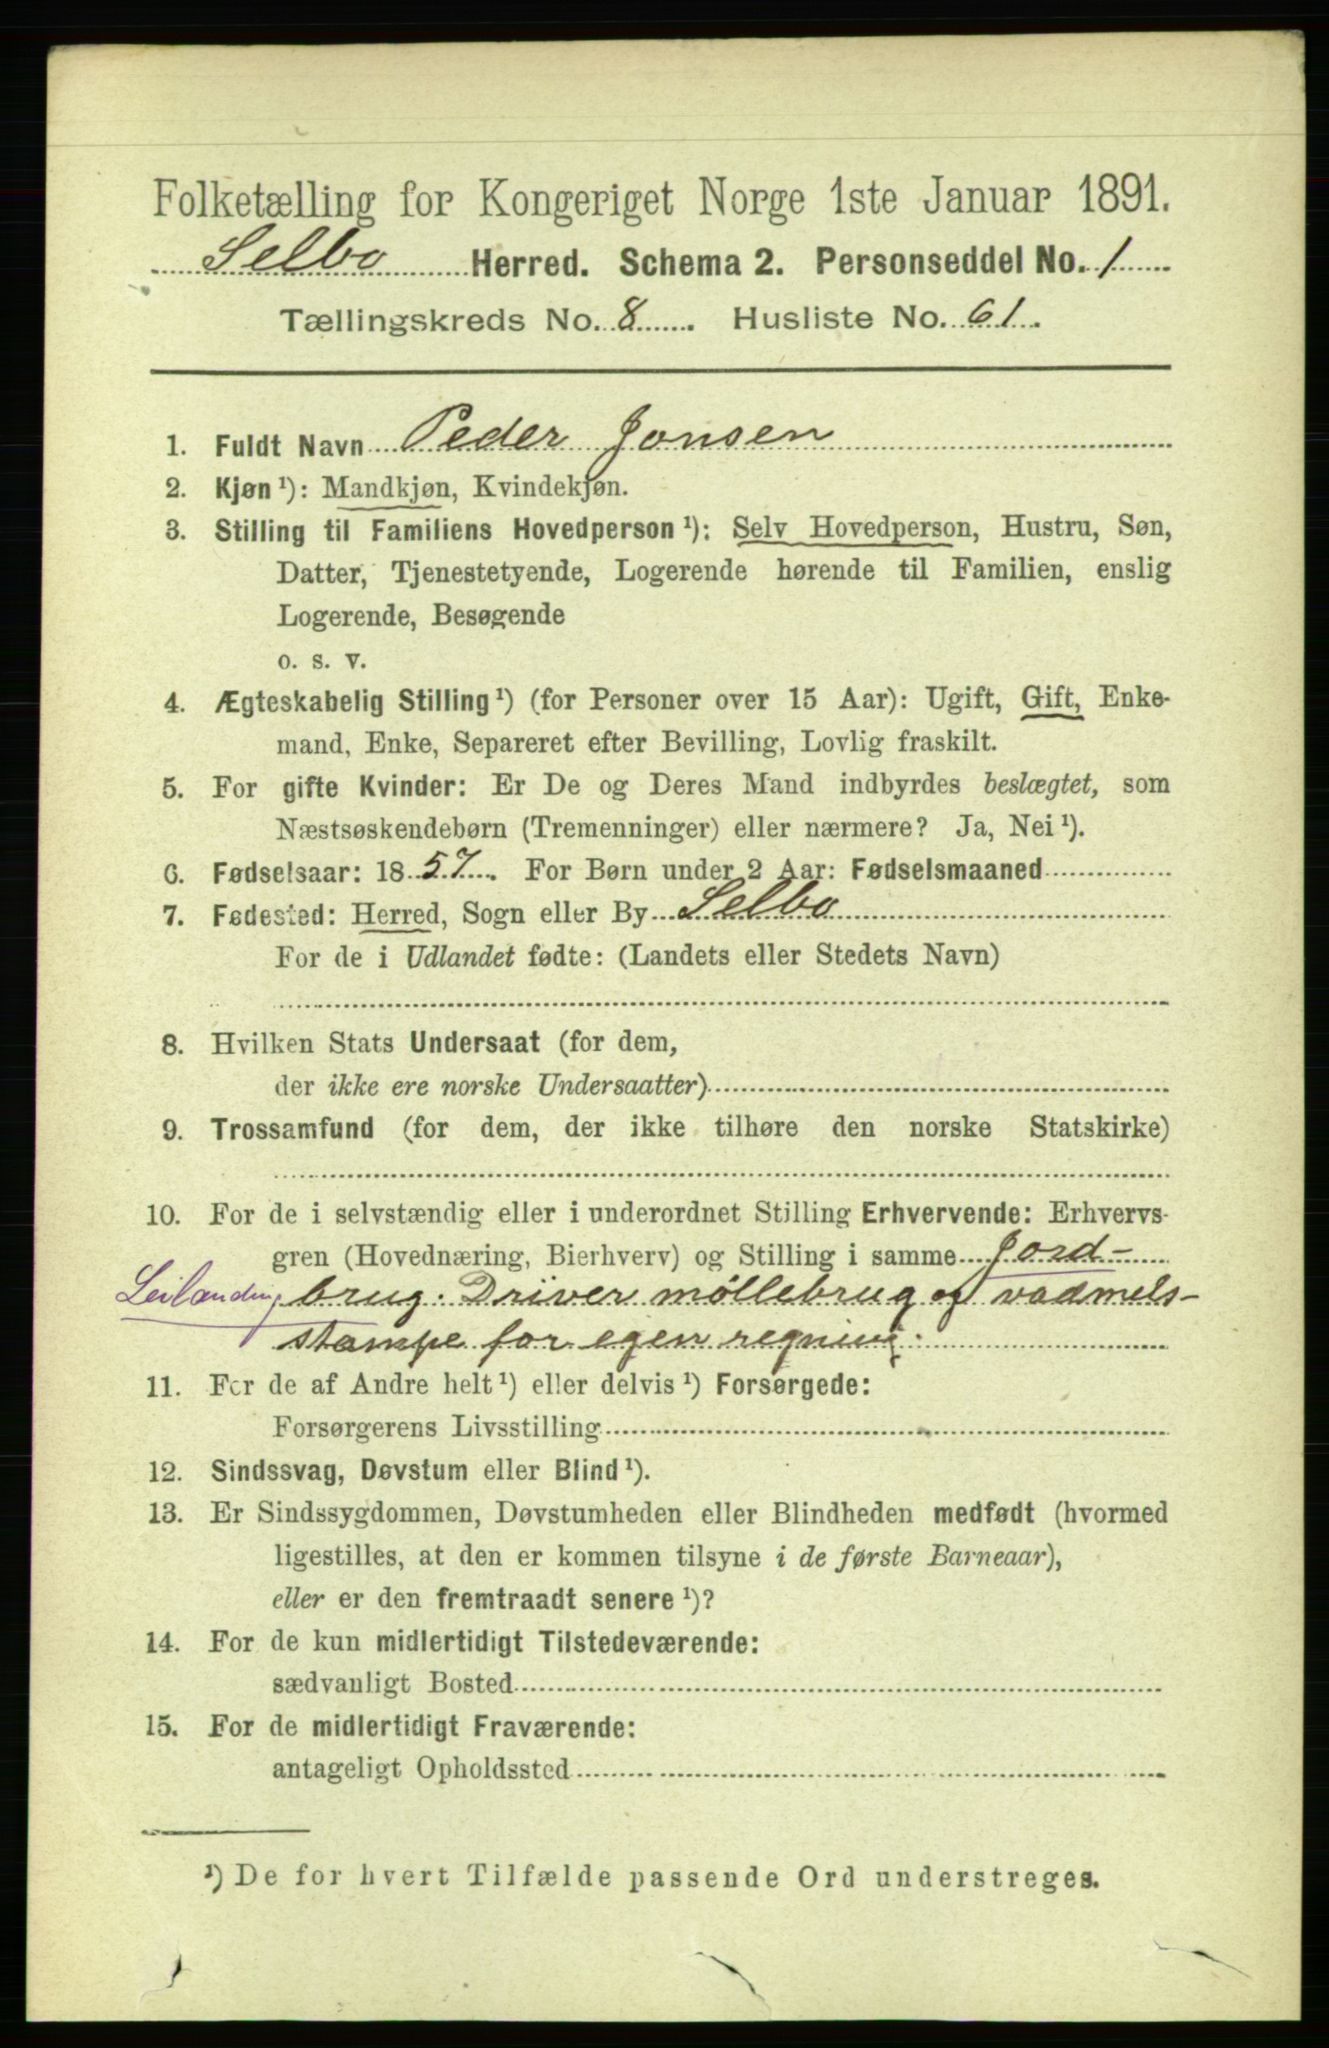 Folketælling for Kongeriget Norge 1ste Januar 1891.
Selbo Herred. Schema 2. Personseddel No. 1
Tællingskreds No. 8. Husliste No. 61.
1. Fuldt Navn Peder Jonsen
2. Kjøn ¹): Mandkjøn, Kvindekjøn.
3. Stilling til Familiens Hovedperson ¹): Selv Hovedperson, Hustru, Søn,
Datter, Tjenestetyende, Logerende hørende til Familien, enslig
Logerende, Besøgende
o. s. v.
4. Ægteskabelig Stilling ¹) (for Personer over 15 Aar): Ugift, Gift, Enke-
mand, Enke, Separeret efter Bevilling, Lovlig fraskilt.
5. For gifte Kvinder: Er De og Deres Mand indbyrdes beslægtet, som
Næstsøskendebørn (Tremenninger) eller nærmere? Ja, Nei ¹).
6. Fødselsaar: 1857. For Børn under 2 Aar: Fødselsmaaned
7. Fødested: Herred, Sogn eller By Selbo
For de i Udlandet fødte: (Landets eller Stedets Navn)
8. Hvilken Stats Undersaat (for dem,
der ikke ere norske Undersaatter)
9. Trossamfund (for dem, der ikke tilhøre den norske Statskirke)
10. For de i selvstændig eller i underordnet Stilling Erhvervende: Erhvervs-
gren (Hovednæring, Bierhverv) og Stilling i samme Jord-
Leilænding brug. Driver møllebrug og vadmels-
stampe for egen regning.
11. For de af Andre helt ¹) eller delvis ¹) Forsørgede:
Forsørgerens Livsstilling
12. Sindssvag, Døvstum eller Blind ¹).
13. Er Sindssygdommen, Døvstumheden eller Blindheden medfødt (hvormed
ligestilles, at den er kommen tilsyne i de første Barneaar),
eller er den fremtraadt senere ¹)?
14. For de kun midlertidigt Tilstedeværende:
sædvanligt Bosted
15. For de midlertidigt Fraværende:
antageligt Opholdssted
¹) De for hvert Tilfælde passende Ord understreges.